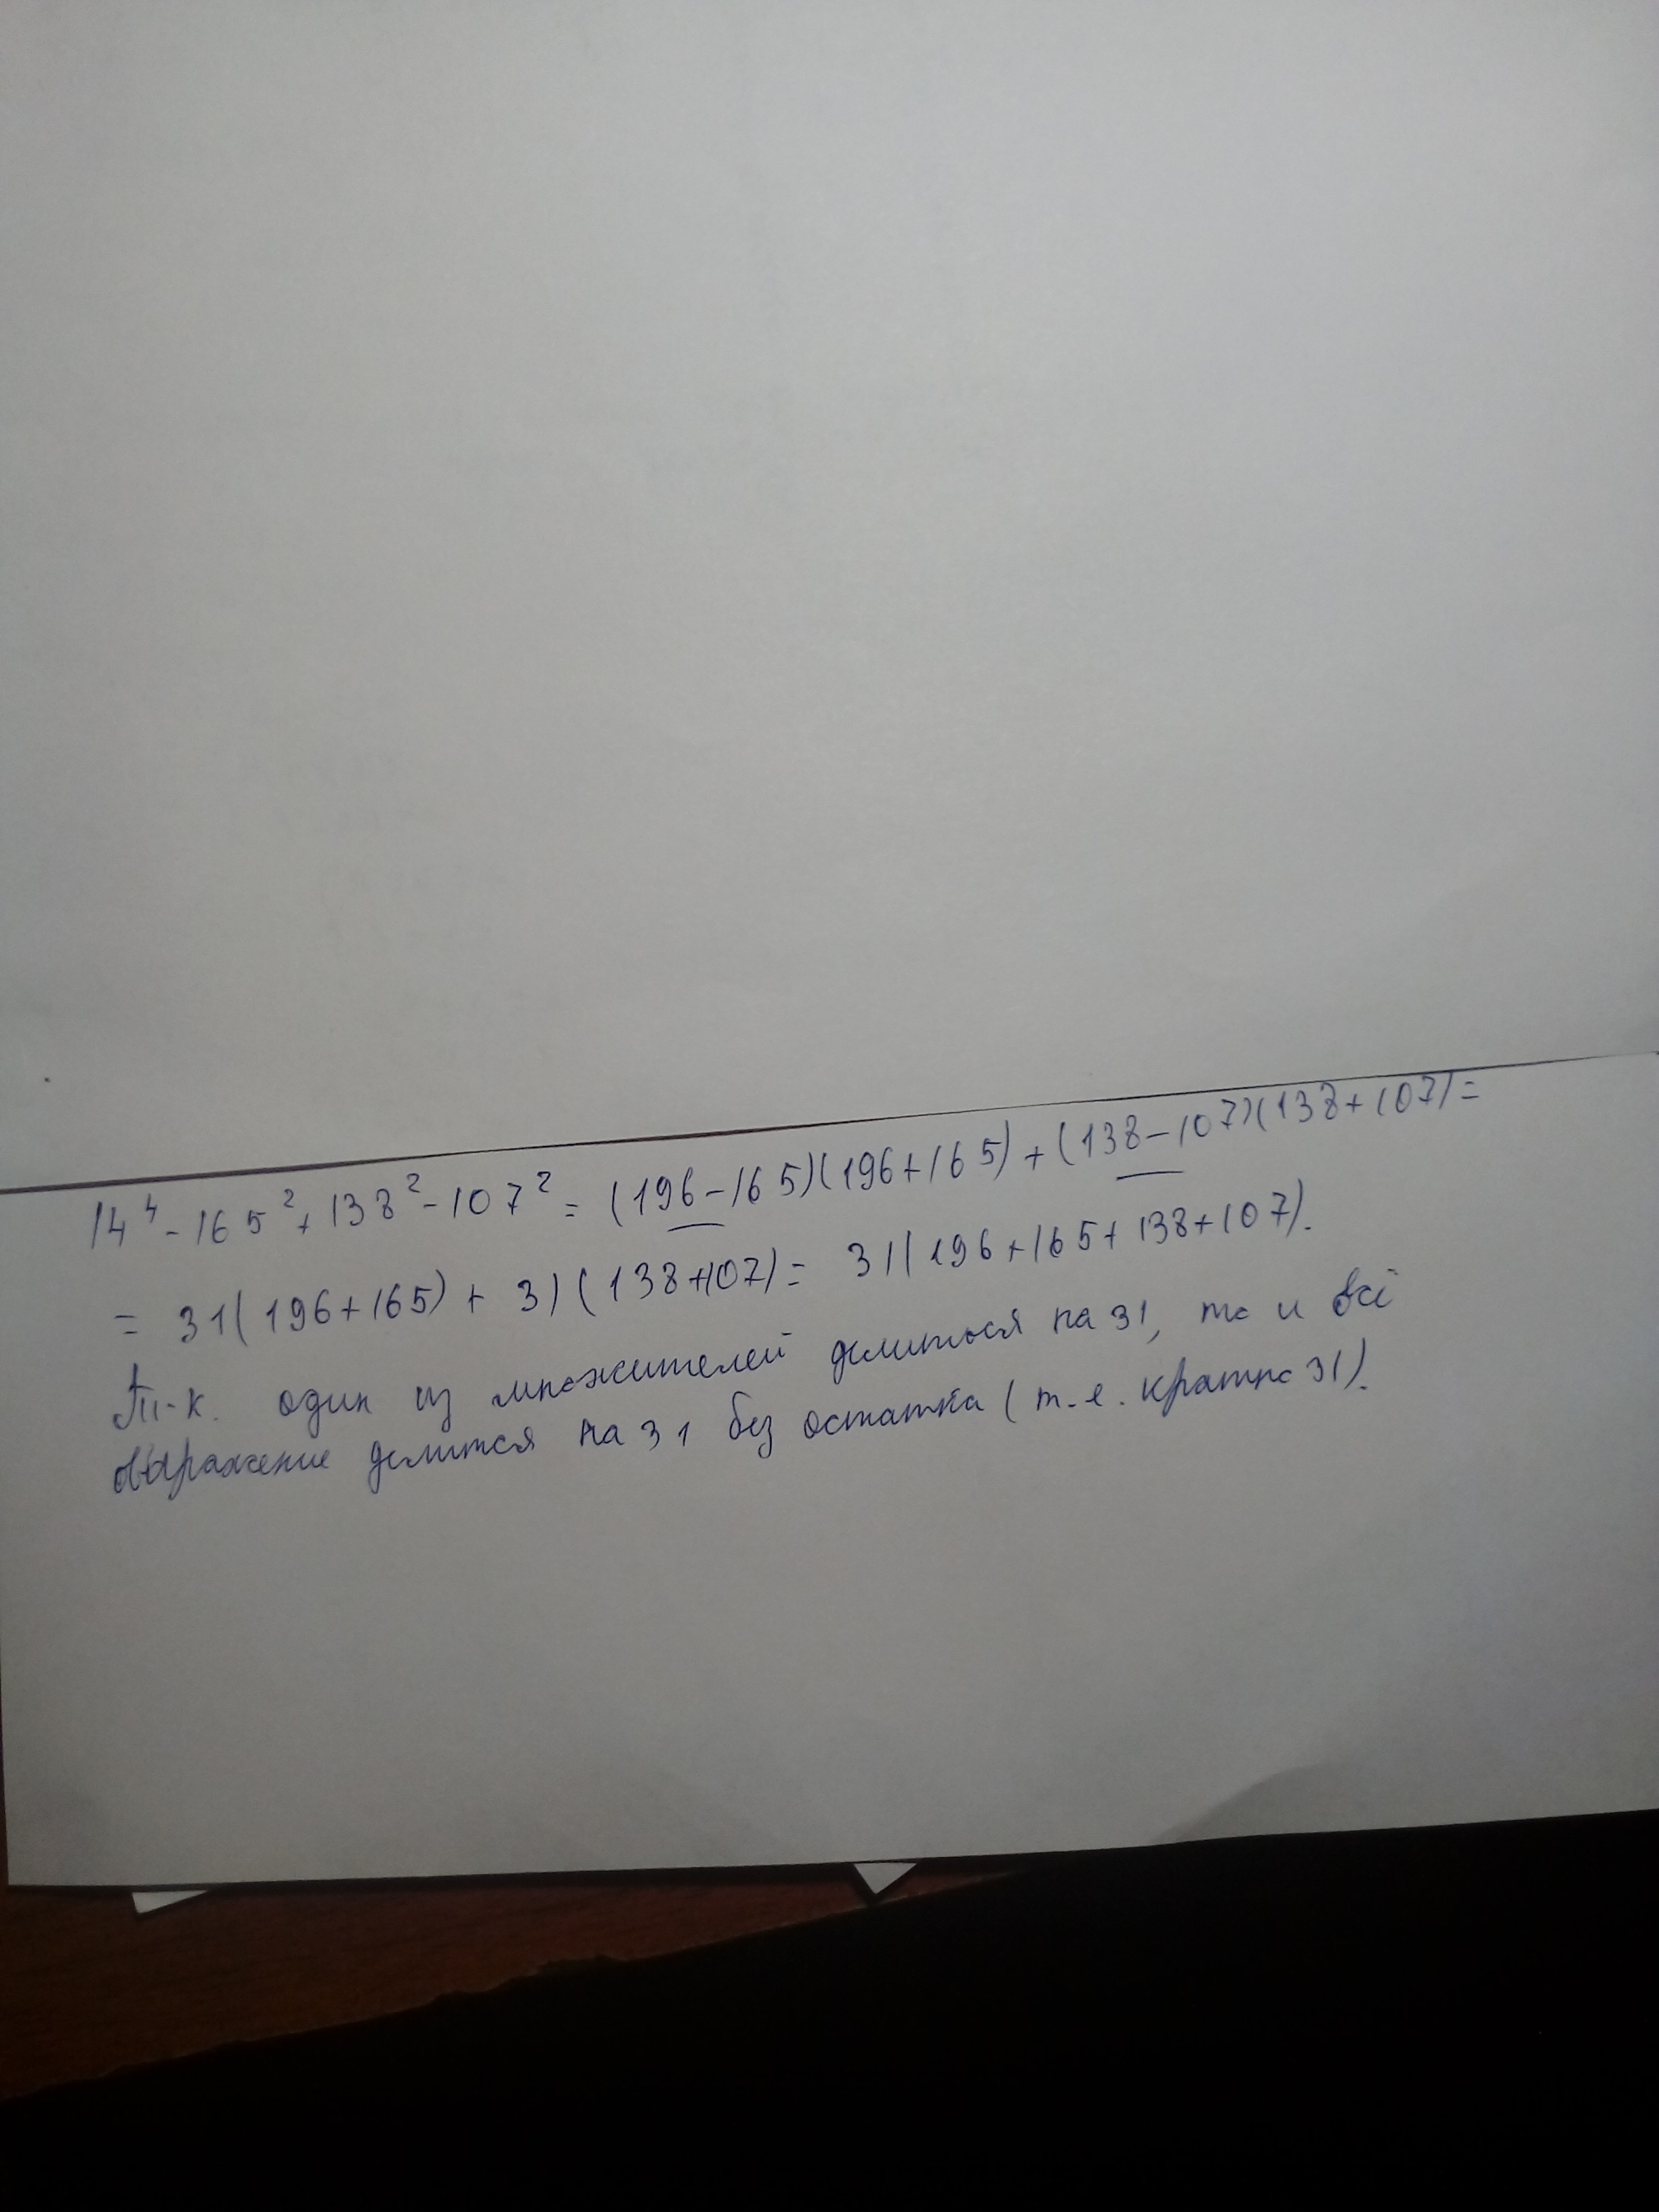 14⁴ - 165² + 138² - 107² = (196 - 165)(196 + 165) + (138 - 107)(138 + 107) =
= 31(196 + 165) + 31(138 + 107) = 31(196 + 165 + 138 + 107).
Т.к. один из множителей делиться на 31, то и всё
выражение делится на 31 без остатка (т.е. кратно 31).